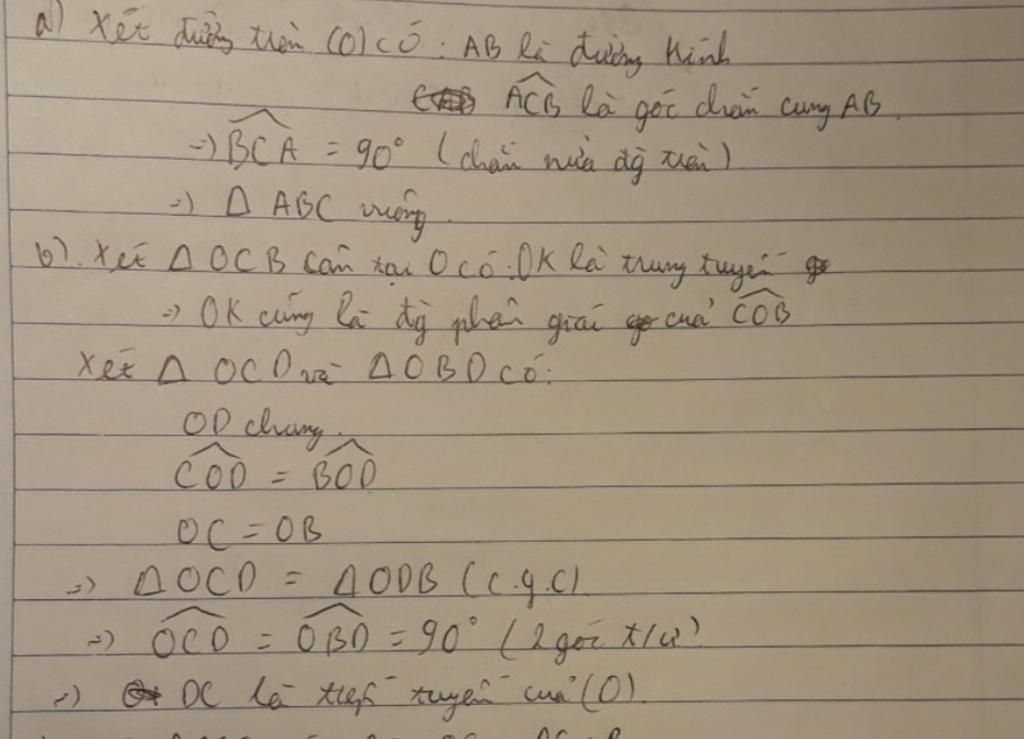 a) Xét đường tròn (O) có: AB là đường kính
ACB là góc chắn cung AB.
=) BCA = 90° (chắn nửa đg tròn)
=) Δ ABC vuông.
b). Xét Δ OCB cân tại O có: OK là trung tuyến
=) OK cũng là đg phân giác của COB
Xét Δ OCD và Δ OBD có:
OD chung.
COD = BOD
OC = OB
=) Δ OCD = Δ ODB (c.g.c)
=) OCD = OBD = 90° (2 góc t/ư)
=) DC là tiếp tuyến của (O).